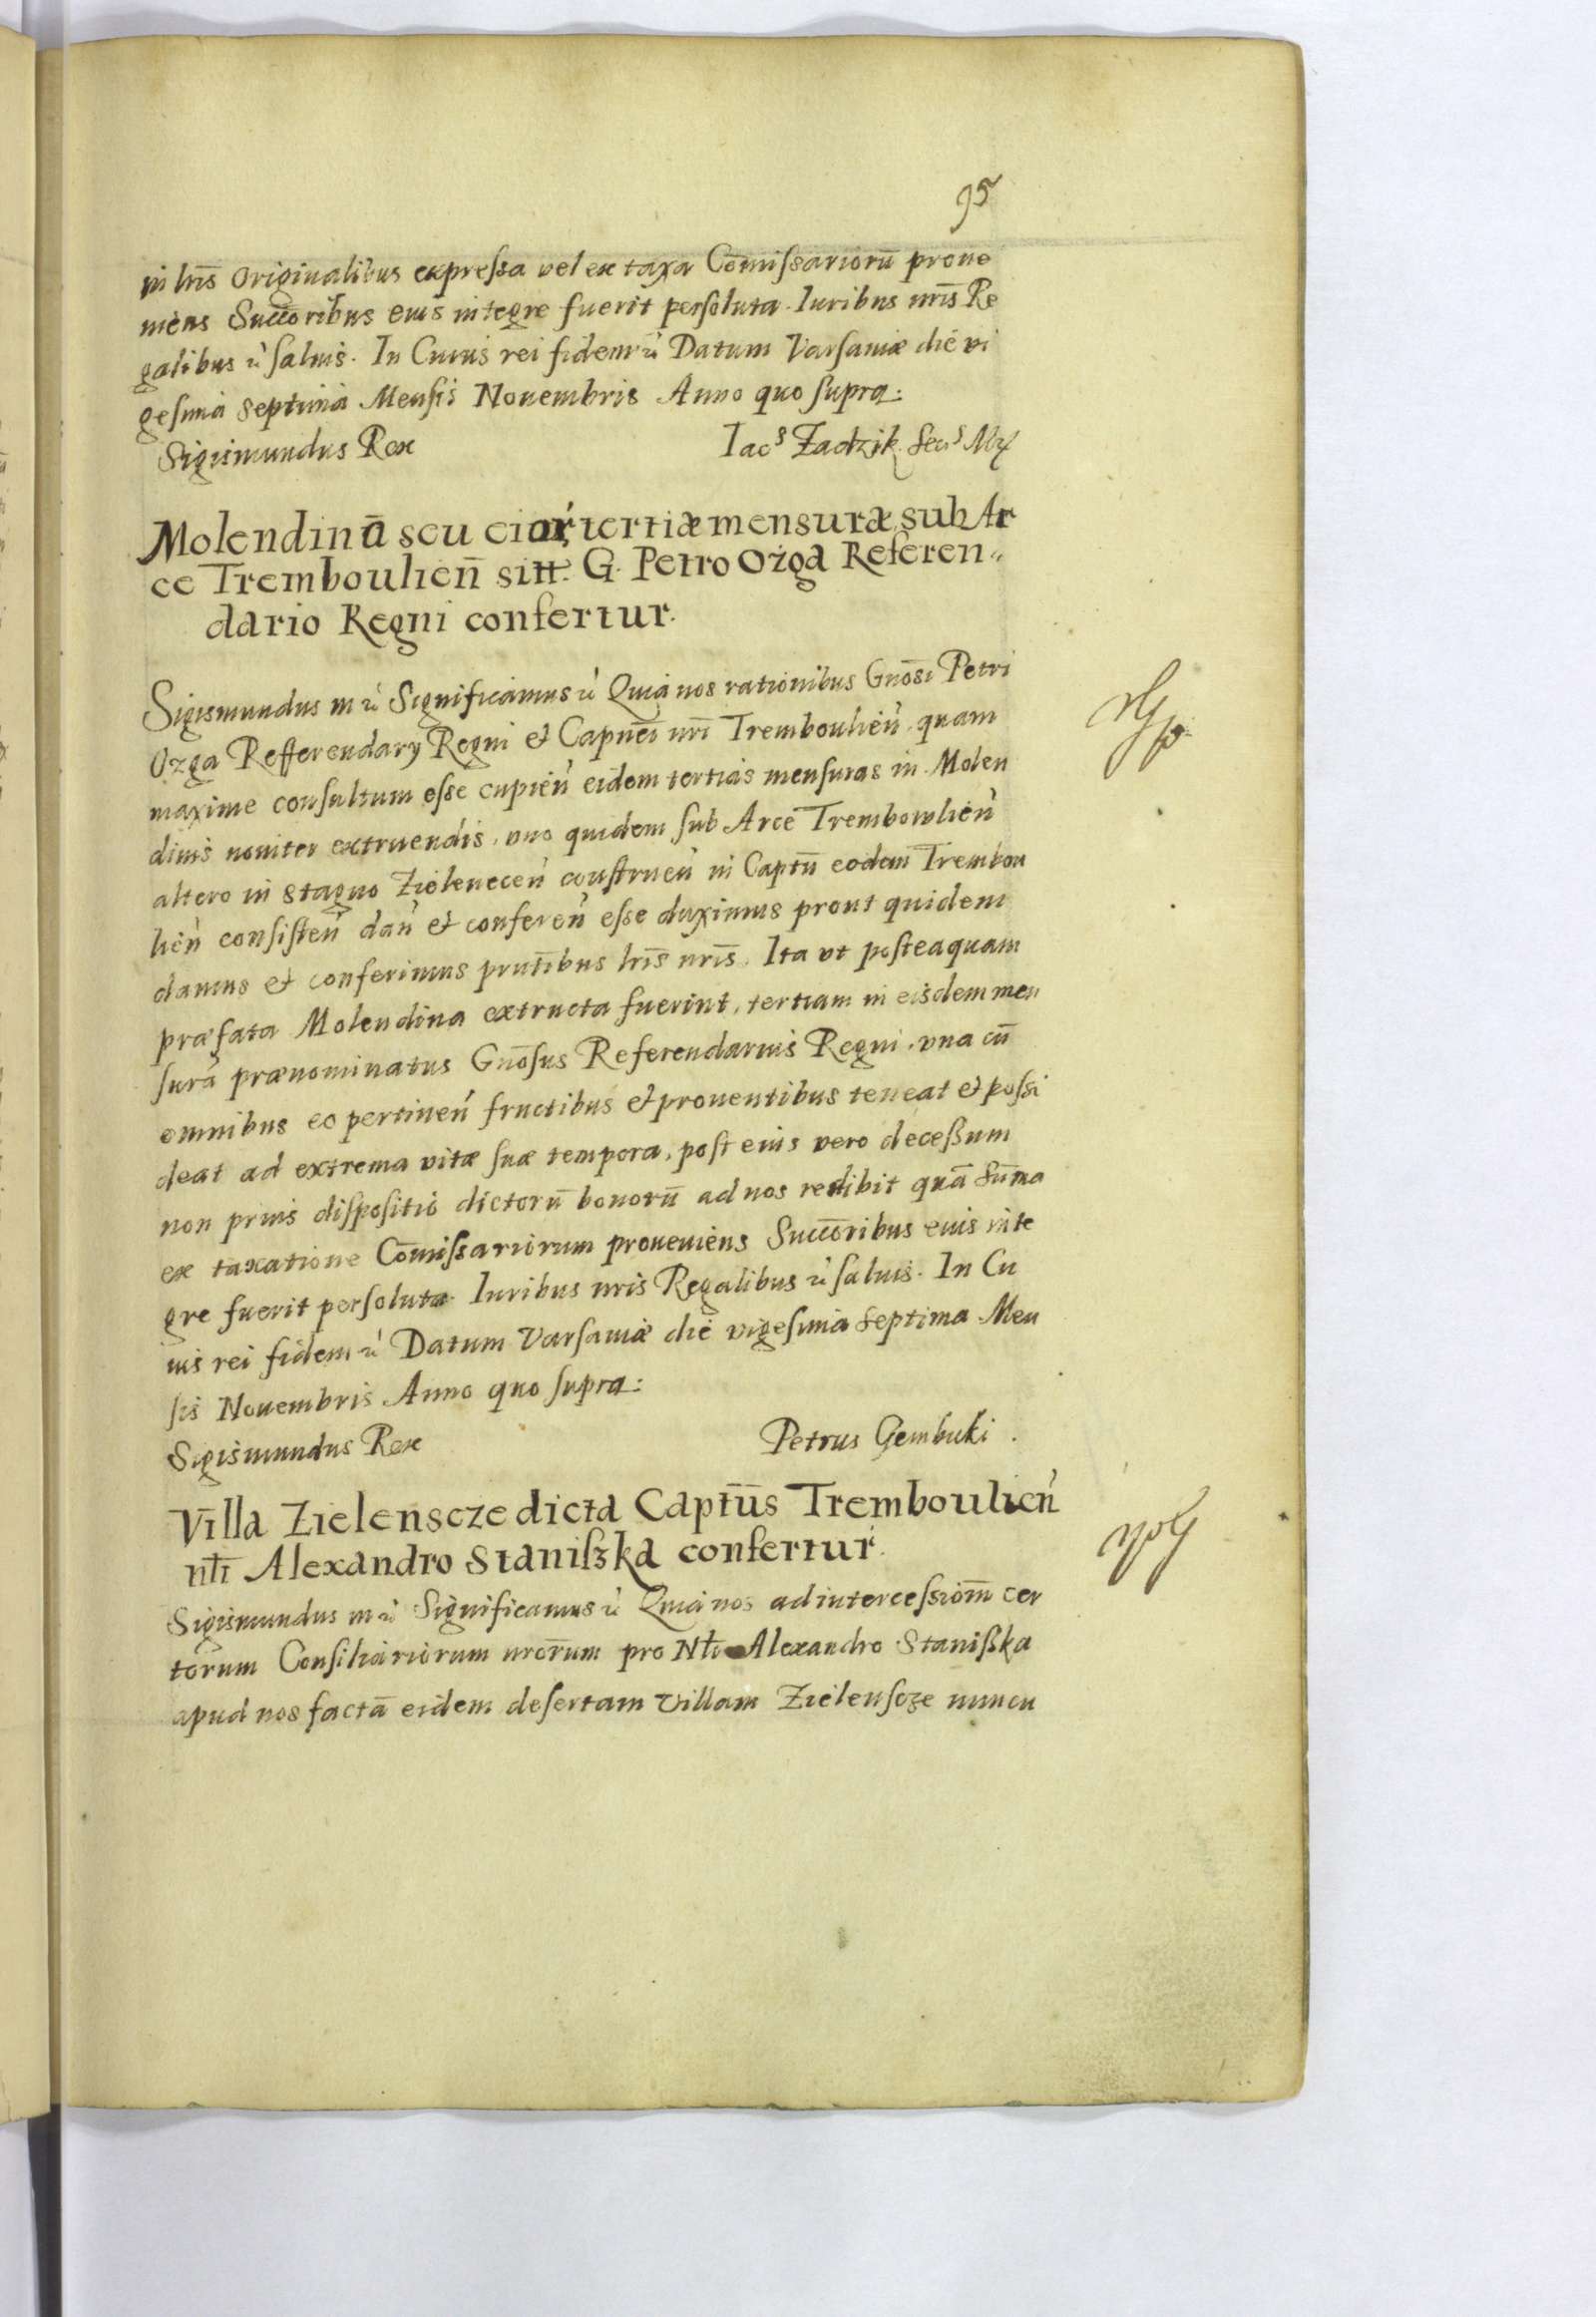 95
in lrīs originalibus expressa vel ex taxa Cōmissariorū prove
niens Succōribus eius integre fuerit persoluta. Iuribus nrīs Re
galibus ù salvis. In Cuius rei fidem ù Datum Varsaviæ die vi
gesima septima Mensis Novembris Anno quo supra:
Sigismundus Rex Iacˢ Zadzik Secˢ Mr
Molendinā seu eior tertiæ mensuræ sub Ar
ce Tremboulien̄ sitt. G. Petro Ożga Referen„
dario Regni confertur.
Sigismundus m ù Significamus ù Quia nos rationibus Gnōsi Petri
Ozga Refferendary Regni et Capnēi nrī Trembouliен̀ quam
maxime consultum esse cupieǹ eidem tertias mensuras in Molen
dinis noviter extruendis, vno quidem sub Arce Trembowlieǹ
altero in stagno Zieleneceǹ construeǹ in Captū eodem Trembou
lieǹ consisteǹ daǹ et confereǹ esse duximus prout quidem
damus et conferimus prntībus lrīs nrīs. Ita vt posteaquam
præfata Molendina extructa fuerint, tertiam in eisdem men
surā prænominatus Gnōsus Referendarius Regni, vna cū
omnibus eo pertineǹ fructibus et proventibus teneat et possi
deat ad extrema vitæ suæ tempora, post eius vero decessum
non prius dispositio dictorū bonorū ad nos redibit quā sūma
ex taxatione Cōmissariorum proveniens Succōribus eius inte
gre fuerit persoluta. Iuribus nris Regalibus ù salvis. In Cu
ius rei fidem ù Datum Varsaviæ die vigesima septima Men
sis Novembris Anno quo supra:
Sigismundus Rex Petrus Gembicki.
Villa Zielenscze dicta Captūs Tremboulieǹ
nłi Alexandro Staniszka confertur.
Sigismundus m ù Significamus ù Quia nos ad intercessiom̄ cer
torum Consiliariorum nrōrum pro Nłi Alexandro Staniszka
apud nos factā eidem desertam Villam Zielenscze nuncu